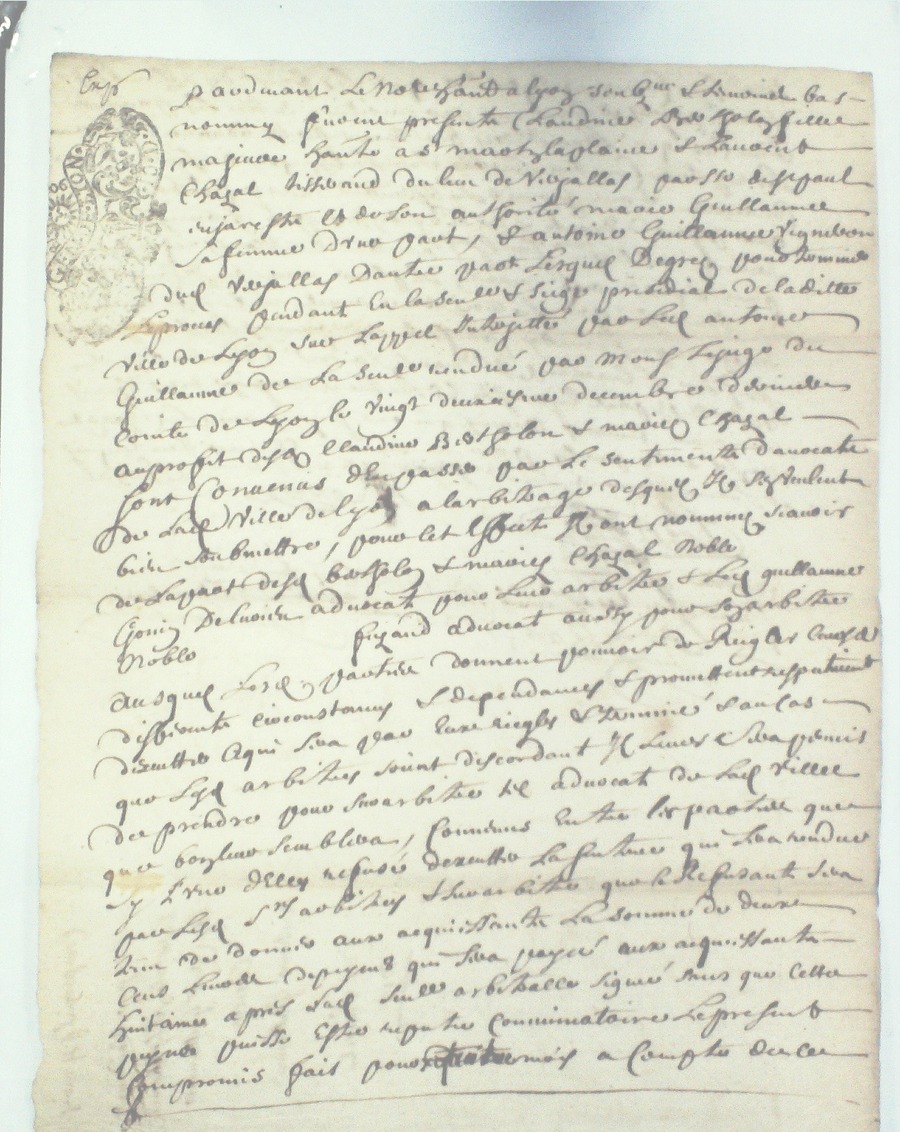 Pardevant Le Notaire à Lyon soub.né & temoins bas
nommez furent presents Claudine Bertholon fille
majeure à St & Laurent
Chazal tisserand du lieu de Viejallas parroisse de St paul
en jarestz & de son authorité marie Guillaume
sa femme D'une part, & antoine Guillaume vigneron
dud Viejallas D'autre part Lesquels Degrez pour terminer
Le procès pendant En la senech & siege presidial de ladite
Ville de Lyon sur L'appel Interjetté par Led antoine
Guillaume de La sent.ce rendue par Mons Le juge du
Comté de Lyon le vingt deuxiesme decembre dernier
au profit desd Claudine Bertholon & mariez Chazal
sont Convenus d'En passer par Le sentiments d'avocats
de Lad Ville de Lyon a l'arbitrage desquels Ils se veulent
bien soubmettre, pour cet Effect Ils ont nommez scavoir
de La part desd Bertholon & mariez Chazal Noble
advocat pour Leur arbitre & Led guillaume
Noble advocat aussy pour son arbitre
ausquels Lesd parties donnent pouvoir de Regler Leurs
differents circonstances & dependances & promettent respectivement
d'executter Ce qui sera par Eux reiglés & terminé & au cas
que Lesd arbitres soient discordant Il Leurs Sera permis
de prendre pour surarbitre tel advocat de Lad Ville
que bon Leur semblera, Convenus Entre les parties que
sy L'une d'Elles refuse d'executter La sentence qui sera rendue
par Lesd Srs arbitres & surarbitre que le Refusant sera
tenu de donner aux acquiessants La somme de deux
Cens Livres de peyne qui sera payée aux acquiessants
huitaine après Lad sent.ce arbitralle signée sans que Cette
peyne puisse Estre reputée Comminatoire Le present
Compromis fait pour mois a Compter de ce